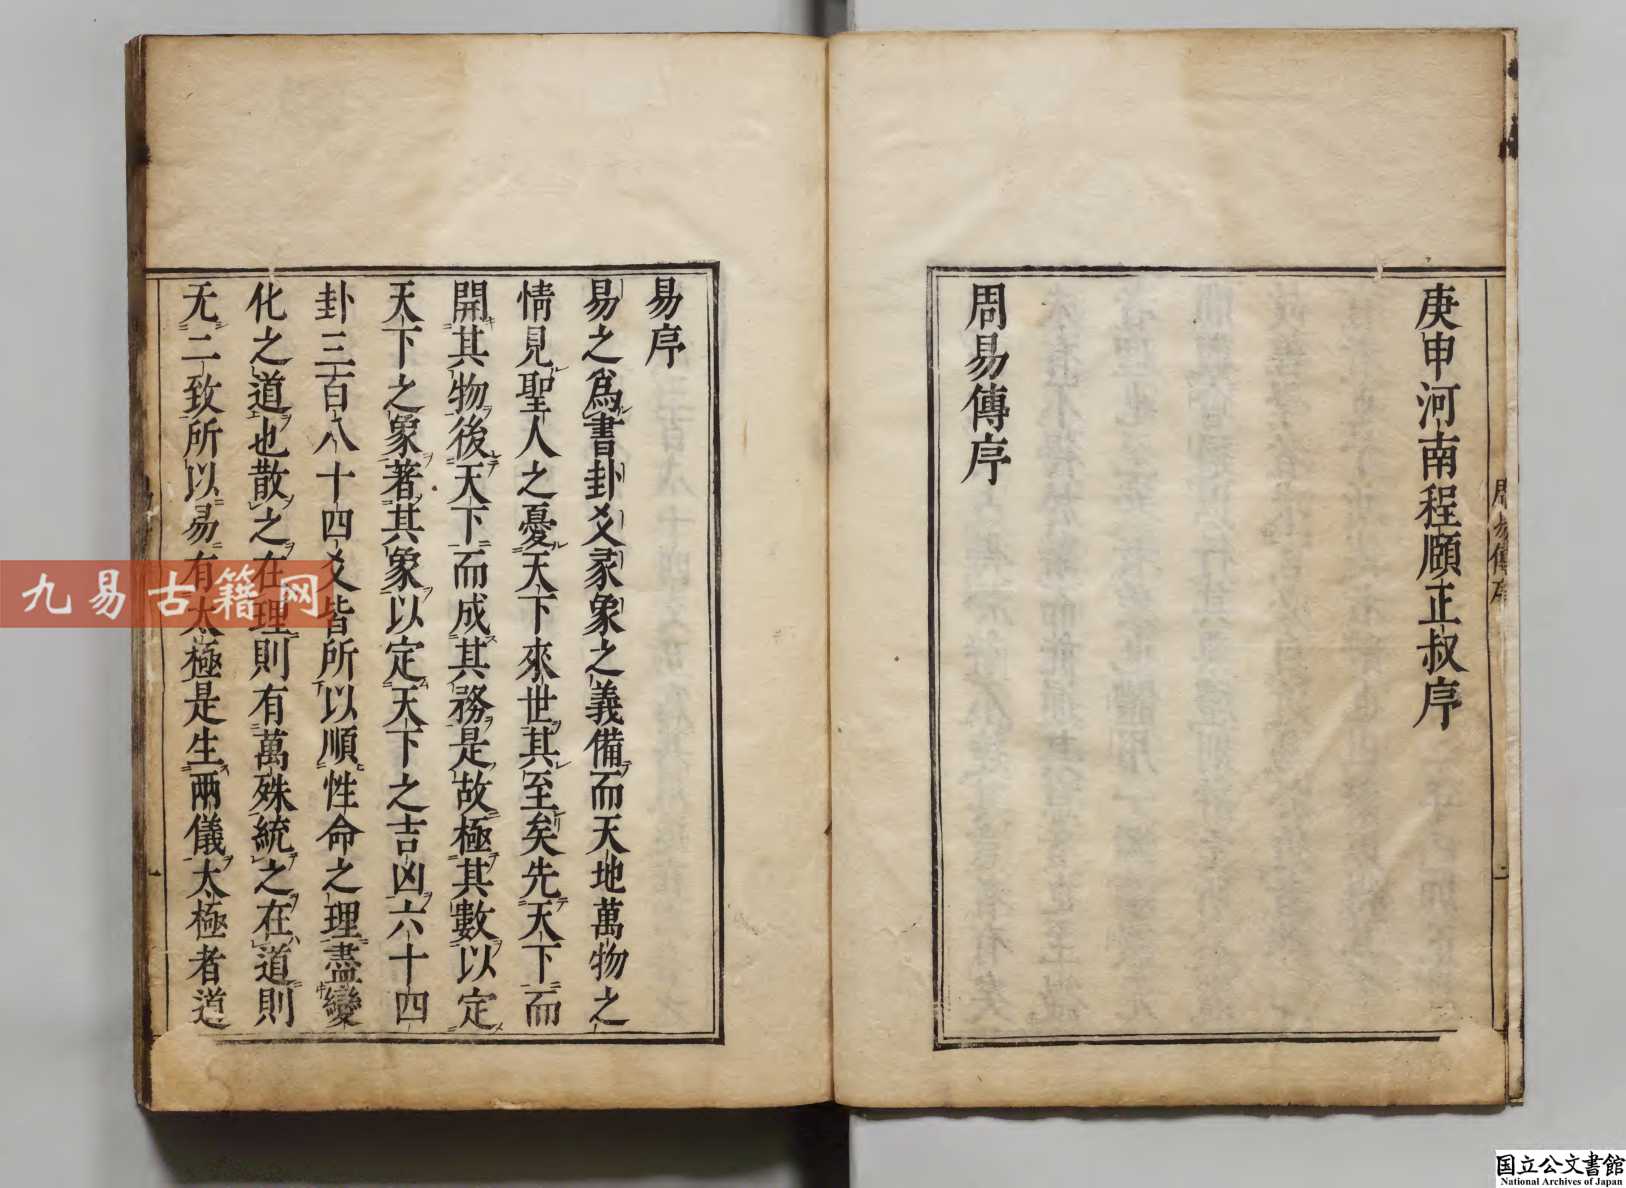 庚申河南程頤正叔序
周易傳序
周易傳序
易序
易之爲書卦爻彖象之義備而天地萬物之
情見聖人之憂天下來世其至矣先天下而
開其物後天下而成其務是故極其數以定
天下之象著其象以定天下之吉凶六十四
卦三百八十四爻皆所以順性命之理盡變
化之道也散之在理則有萬殊統之在道則
无二致所以易有太極是生兩儀太極者道
九易古籍网
国立公文書館
National Archives of Japan